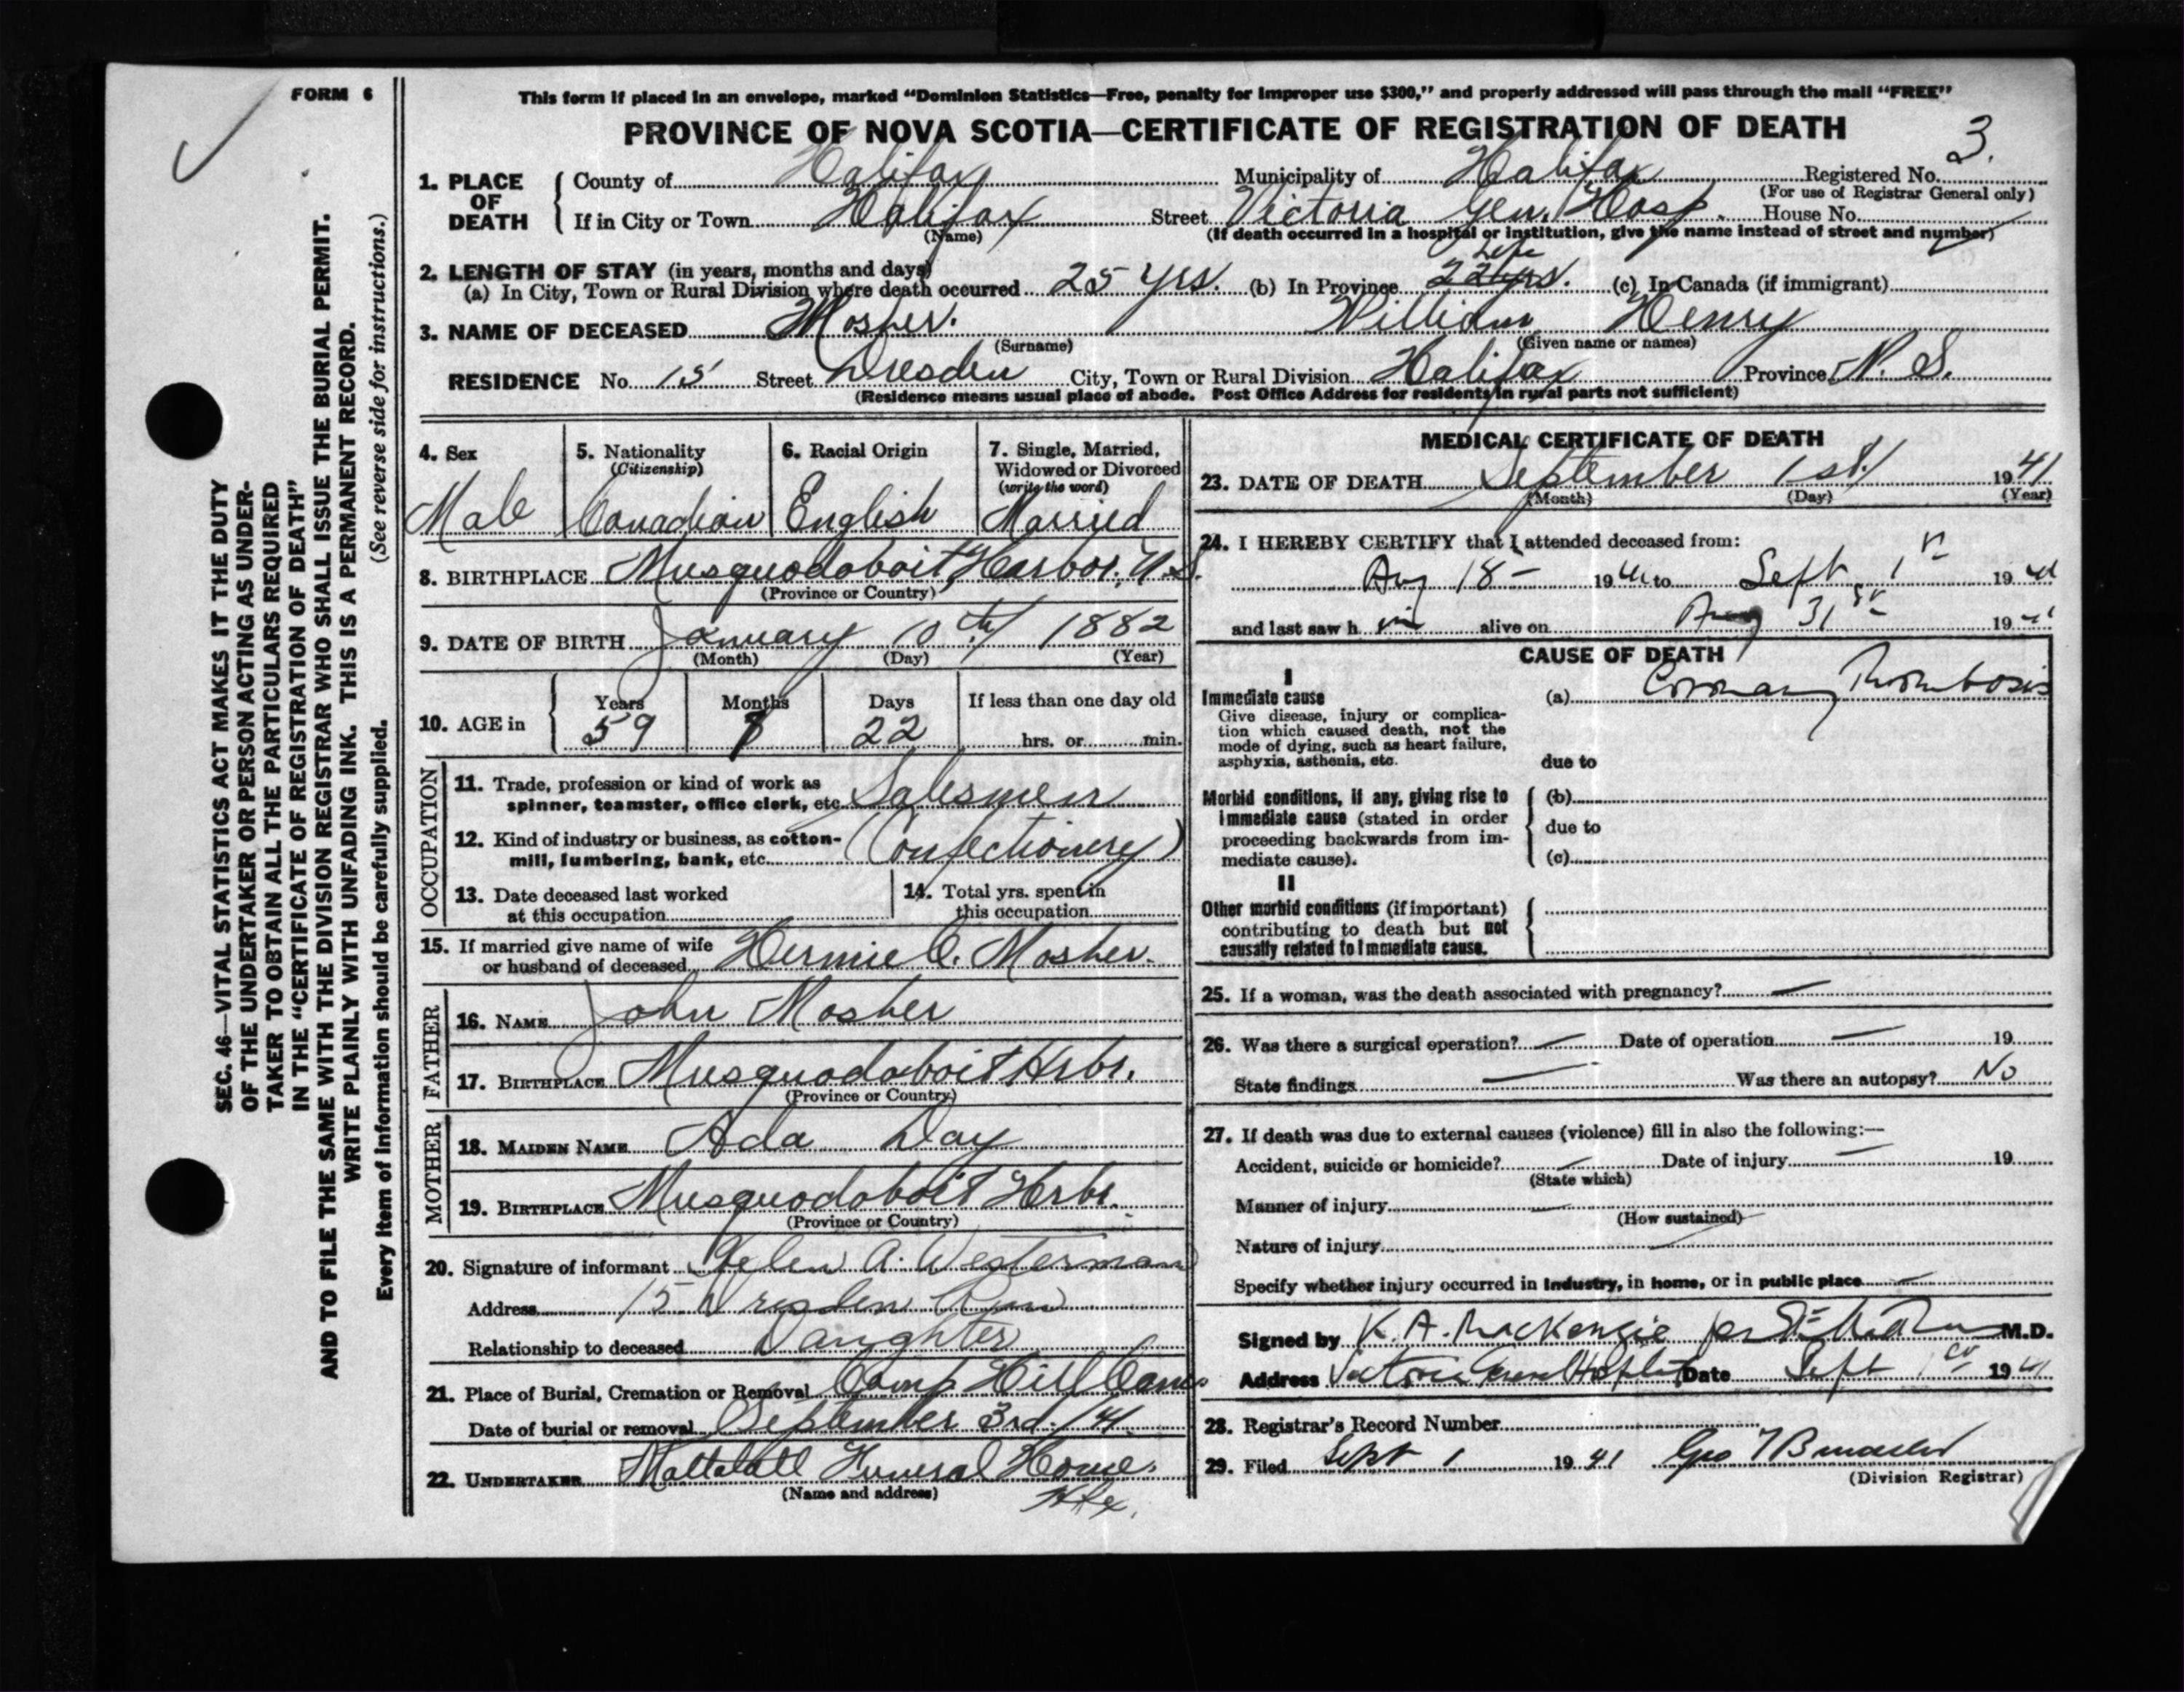 FORM 6
This form if placed in an envelope, marked “Dominion Statistics—Free, penalty for improper use $300,” and properly addressed will pass through the mail “FREE”
PROVINCE OF NOVA SCOTIA—CERTIFICATE OF REGISTRATION OF DEATH
3.
1. PLACE OF DEATH
County of Halifax Municipality of Halifax Registered No.
(For use of Registrar General only)
If in City or Town Halifax Street Victoria Gen. Hosp. House No.
(Name) (If death occurred in a hospital or institution, give the name instead of street and number)
2. LENGTH OF STAY (in years, months and days)
Life
(a) In City, Town or Rural Division where death occurred 25 yrs. (b) In Province 22 yrs. (c) In Canada (if immigrant)
3. NAME OF DECEASED Mosher. William Henry
(Surname) (Given name or names)
RESIDENCE No. 15 Street Dresden City, Town or Rural Division Halifax Province N. S.
(Residence means usual place of abode. Post Office Address for residents in rural parts not sufficient)
4. Sex
Male
5. Nationality
(Citizenship)
Canadian
6. Racial Origin
English
7. Single, Married,
Widowed or Divorced
(write the word)
Married
8. BIRTHPLACE Musquodoboit Harbor, N.S.
(Province or Country)
9. DATE OF BIRTH January 10th 1882
(Month) (Day) (Year)
10. AGE in
Years Months Days If less than one day old
59 7 22 hrs. or min.
OCCUPATION
11. Trade, profession or kind of work as
spinner, teamster, office clerk, etc. Salesman
12. Kind of industry or business, as cotton-
mill, lumbering, bank, etc. (Confectionery)
13. Date deceased last worked
at this occupation
14. Total yrs. spent in
this occupation
15. If married give name of wife
or husband of deceased Hermie C. Mosher.
FATHER
16. NAME John Mosher
17. BIRTHPLACE Musquodoboit Hrbr.
(Province or Country)
MOTHER
18. MAIDEN NAME Ada Day
19. BIRTHPLACE Musquodoboit Hrbr.
(Province or Country)
20. Signature of informant Helen A. Westerman
Address 15 Dresden Row
Relationship to deceased Daughter
21. Place of Burial, Cremation or Removal Camp Hill Cem.
Date of burial or removal September 3rd. /41
22. UNDERTAKER Mattatall Funeral Home.
(Name and address) Hfx.
MEDICAL CERTIFICATE OF DEATH
23. DATE OF DEATH September 1st. 1941
(Month) (Day) (Year)
24. I HEREBY CERTIFY that I attended deceased from:
Aug 18 – 1941 to Sept. 1st 1941
and last saw him alive on Aug 31st 1941
CAUSE OF DEATH
I
Immediate cause
Give disease, injury or complica-
tion which caused death, not the
mode of dying, such as heart failure,
asphyxia, asthenia, etc.
(a) Coronary Thrombosis
due to
Morbid conditions, if any, giving rise to
immediate cause (stated in order
proceeding backwards from im-
mediate cause).
(b)
due to
(c)
II
Other morbid conditions (if important)
contributing to death but not
causally related to immediate cause.
25. If a woman, was the death associated with pregnancy? —
26. Was there a surgical operation? — Date of operation — 19
State findings — Was there an autopsy? No
27. If death was due to external causes (violence) fill in also the following:—
Accident, suicide or homicide? — Date of injury — 19
(State which)
Manner of injury —
(How sustained)
Nature of injury —
Specify whether injury occurred in industry, in home, or in public place —
Signed by K. A. MacKenzie per M.D.
Address Victoria Gen Hospital Date Sept 1st 1941
28. Registrar's Record Number
29. Filed Sept 1 1941 Geo
(Division Registrar)
SEC. 46—VITAL STATISTICS ACT MAKES IT THE DUTY
OF THE UNDERTAKER OR PERSON ACTING AS UNDER-
TAKER TO OBTAIN ALL THE PARTICULARS REQUIRED
IN THE “CERTIFICATE OF REGISTRATION OF DEATH”
AND TO FILE THE SAME WITH THE DIVISION REGISTRAR WHO SHALL ISSUE THE BURIAL PERMIT.
WRITE PLAINLY WITH UNFADING INK. THIS IS A PERMANENT RECORD.
(See reverse side for instructions.)
Every item of information should be carefully supplied.